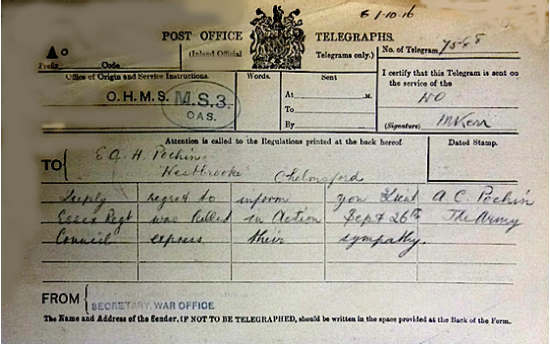 6/10.16
POST OFFICE TELEGRAPHS.
(Inland Official Telegrams only.)
No. of Telegram 7548
Prefix Code
Office of Origin and Service Instructions.
Words.
Sent
I certify that this Telegram is sent on
the service of the
O.H.M.S.
M.S.3.
CAS.
At M.
WO
To
By
(Signature)
Attention is called to the Regulations printed at the back hereof.
Dated Stamp.
TO E.A.H. Pochin
"Westbrooke" Chelmsford
Deeply regret to inform you Lieut A C Pochin
Essex Regt was killed in Action Sept 26th The Army
Council express their sympathy.
FROM SECRETARY, WAR OFFICE
The Name and Address of the Sender, IF NOT TO BE TELEGRAPHED, should be written in the space provided at the Back of the Form.